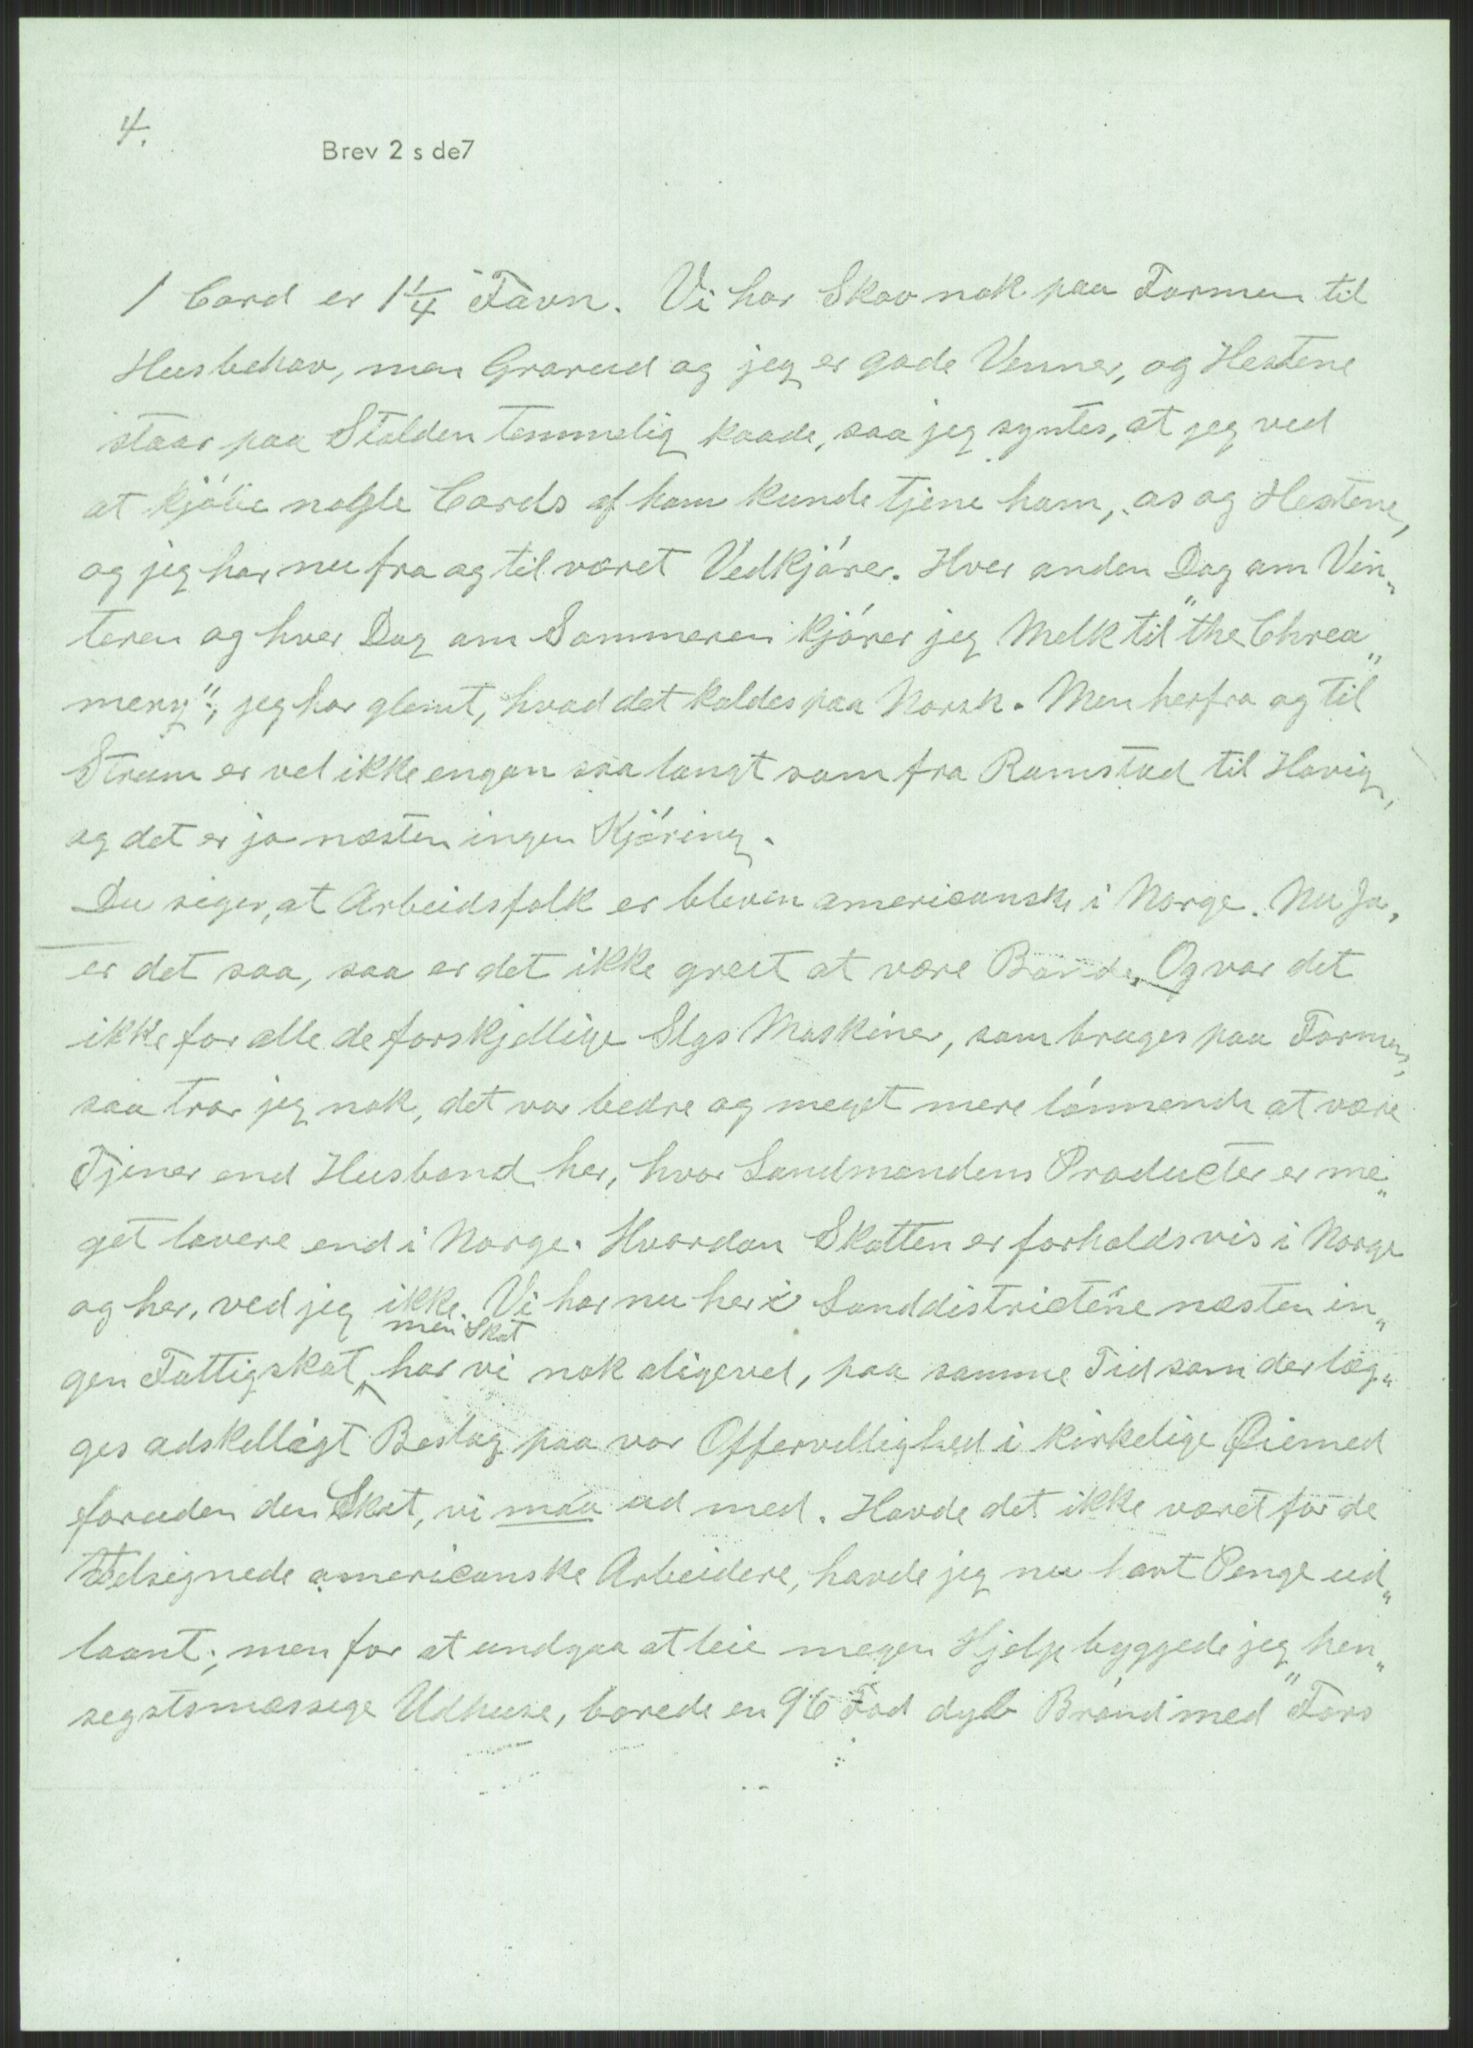 4.
Brev 2 s de7
1 Cord er 1 1/4 Favn. Vi har Skov nok paa Farmen til
Husbehov, men Grarud og jeg er gode Venner, og Hestene
staar paa Stalden temmelig kaade, saa jeg syntes, at jeg ved
at kjöbe nogle Cords af ham kunde tjene ham, os og Hestene,
og jeg har nu fra og til været Vedkjórer. Hver anden Dag om Vin„
teren og hver Dag om Sommeren kjórer jeg Melk til "the Chrea„
mery"; jeg har glemt, hvad det kaldes paa Norsk. Men herfra og til
Strum er vel ikke engan saa langt som fra Ramstad til Hovig,
og det er jo næsten ingen Kjöring.
Du siger, at Arbeidsfolk er bleven americansk i Norge. Nu Ja,
er det saa, saa er det ikke greit at være Bonde. Og var det
ikke for alle de forskjellige Slgs Maskiner, som bruges paa Farmen,
saa tror jeg nok, det var bedre og meget mere lónnende at være
Tjener end Husbond her, hvor Landmandens Producter er me„
get lavere end i Norge. Hvordan Skatten er forholdsvis i Norge
og her, ved jeg ikke. Vi har nu her i Landdistricterne næsten in„
men Skat
gen Fattigskat, har vi nok aligevel, paa samme Tid som der læg„
ges adskelligt Beslag paa vor Offervillighed i kirkelige Øiemed
foruden den Skat, vi maa ud med. Havde det ikke været for de
velsignede americanske Arbeidere, havde jeg nu havt Penge ud„
laant; men for at undgaa at leie megen Hjelp byggede jeg hen„
segtsmæssege Udhuse, borede en 96 Fod dyb Brónd med "Fors